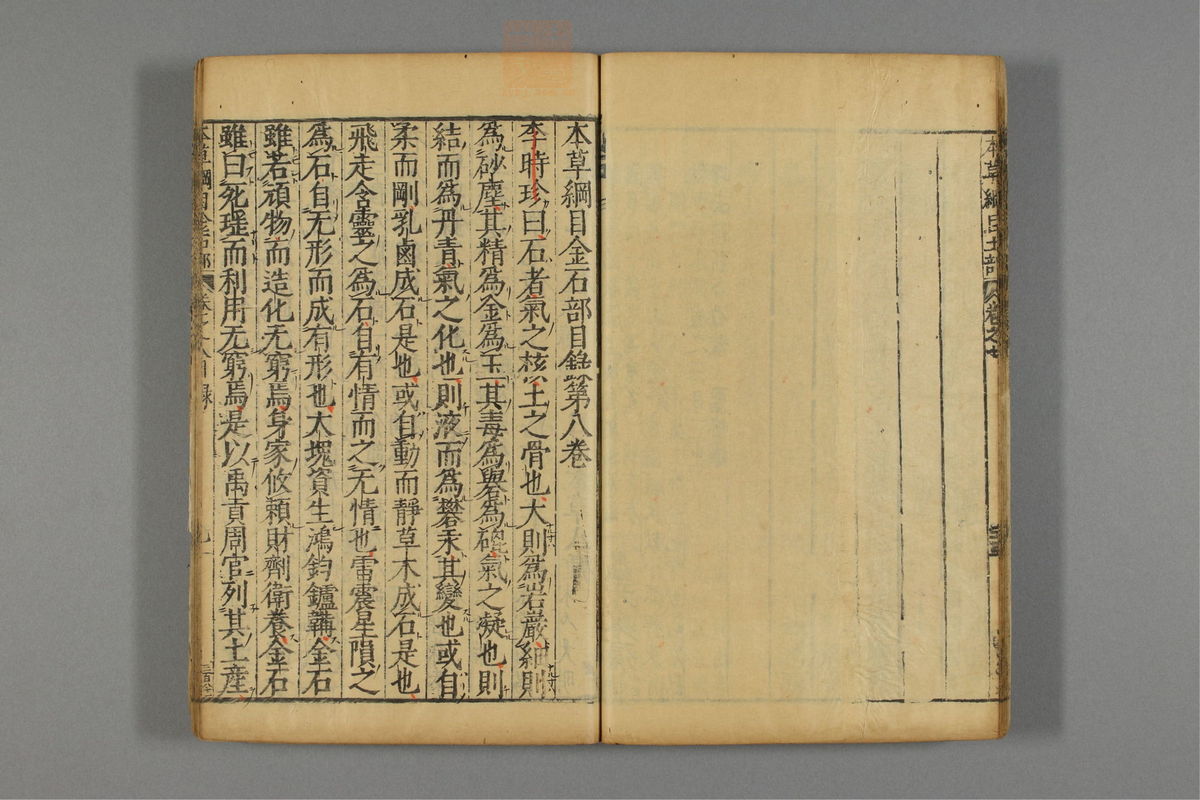 本草綱目土部 卷之七
本草綱目金石部目錄第八卷
李時珍曰石者氣之核土之骨也大則爲岩巖細則
爲砂塵其精爲金爲玉其毒爲礜爲砒氣之凝也則
結而爲丹青氣之化也則液而爲礬汞其變也或自
柔而剛乳鹵成石是也或自動而靜草木成石是也
飛走含靈之爲石自有情而之无情也雷震星隕之
爲石自无形而成有形也大塊資生鴻鈞鑪鞴金石
雖若頑物而造化无窮焉身家攸賴財劑衛養金石
雖曰死瑶而利用无窮焉是以禹貢周官列其土産
本草綱目金石部 目錄